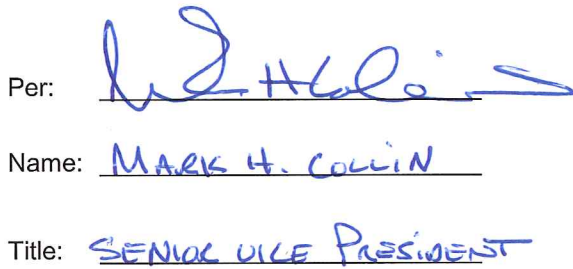 Per: H Collin
Name: MARK H. COLLIN
Title: SENIOR VICE PRESIDENT